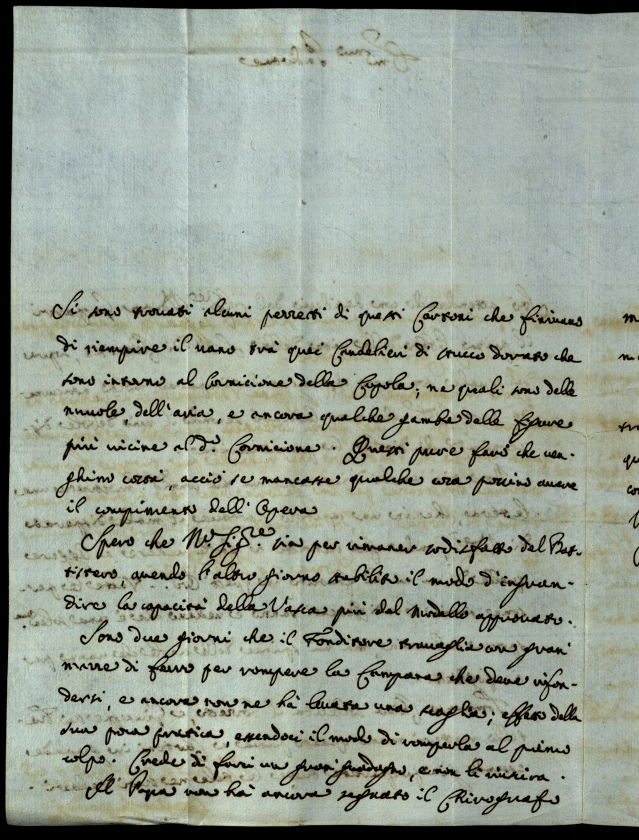 Si sono trouati alcuni pezzetti di questi Cartoni che finiuano
di riempire il uano trà quei Candelieri di stucco dorato che
sono intorno al Cornicione della Cupola; ne quali sono delle
nuuole, dell'aria, e ancora qualche gamba delle figure
più uicine al d.º Cornicione. Questi pure farò che uen-
ghino costì, acciò se mancasse qualche cosa possino auere
il compimento dell'Opera
Spero che N.º Sig.re sia per rimaner sodisfatto del Bat-
tistero, auendo l'altro giorno stabilito il modo d'ingran-
dire la capacità della Vasca più del modello approuato.
Sono due giorni che il Fonditore trauaglia con gran
mazze di ferro per rompere la Campana che deue rifon-
dersi, e ancora non ne hà leuata una scaglia; effetto della
sua poca pratica, essendoci il modo di romperla al primo
colpo. Crede di farci un gran guadagno, e non li riuscirà.
Il Papa non hà ancora segnato il Chirografo